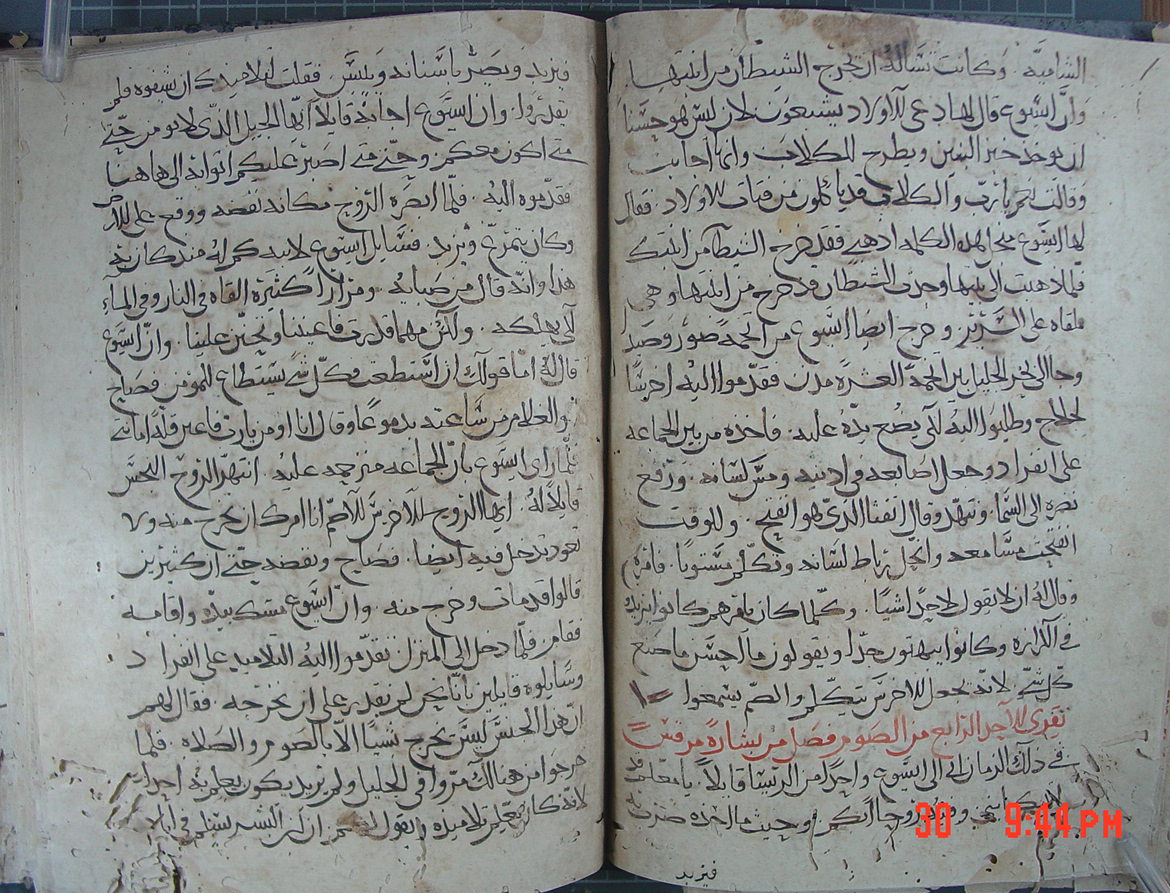 الشامية. وكانت تسأله ان يخرج الشيطان من ابنتها
وانّ ايسوع قال لها دعي للاولاد يشبعون لان ليس هو حسنًا
ان يوخذ خبز البنين ويطرح للكلاب وانها اجابت
وقالت نعم يا ربّ والكلاب قد ياكلون من فتات الاولاد. فقال
لها ايسوع من اجل هذه الكلمه اذهبي فقد خرج الشيطان من ابنتك
فلمّا ذهبت الى بيتها وجدت الشيطان قد خرج من ابنتها وهي
ملقاه على السرير. وخرج ايضا ايسوع من تخمة صور وصيدا
وجا الى بحر الجليل بين تخمة العشرة مدن فقدّموا اليه اخرسًا
وطلبوا اليه لكي يضع يده عليه. فاخذه من بين الجماعه
على انفراد وجعل اصابعه في اذنيه ومسّ لسانه. ورفع
نصره الى السما. وتنهّد وقال انفثا الذي هو انفتح. وللوقت
انفتحت مسامعه وانحلّ رباط لسانه وتكلّم مستويًا. فامرهم
وقال له ان لا يقول لاحدٍ شيًا. وكلّما كان يامرهم كانوا يزيدون
في الكرازه وكانوا يبهتون جدًا ويقولون ما احسن ما صنع
كل شي لانه يجعل للاخرس يتكلّم والصمّ يسمعوا
تقرى للاحد الرابع من الصوم فصل من بشارة مرقس
في ذلك الزمان اتى الى ايسوع واحدًا من الريسا قايلًا يا معلّم
ابني وفيه روحًا ابكم وحيث ما اخذه ضرب به
فيزبد
فيزبد ويصرّ باسنانه وييبس فقلت لتلاميذك ان يشفوه فلم
يقدروا. وان ايسوع اجابه قايلًا ايها الجيل الذي لا يومن حتى
متى اكون معكم وحتى متى اصبر عليكم اتوا به الى هاهنا
فقدّموه اليه. فلمّا ابصره الروح مكانه نفضه ووقع على الارض
وكان يتمرّغ ويزبد. فسايل ايسوع لابيه كم له منذ كان به
هذا وانه قال من صباه. ومرارًا كثيرة القاه في النار وفي الماء
لان يهلكه. ولكن مهما قدرت فاعيننا وتحنّن علينا. وانّ ايسوع
قال له اما قولك ان استطعت فكلّ شي يستطاع للمومن فصاح
ابو الغلام من ساعته بدموعًا وقال انا اومن يا رب فاعين قلّة امانتي
فلمّا راى ايسوع بانّ الجماعه مزدحمه عليه. انتهر الروح النجس
قايلًا له. ايها الروح الاخرس الاصم انا امرك ان تخرج منه ولا
تعود تدخل فيه ايضا. فصاح ونفضه حتى ان كثيرين
قالوا قد مات وخرج منه. وانّ ايسوع مسك بيده واقامه
فقام. فلمّا دخل الى المنزل تقدّموا اليه التلاميذ على انفراد
وسايلوه قايلين بانّا نحن لم نقدر على ان نخرجه. فقال لهم
ان هذا الجنس ليس يخرج بشيًا الّا بالصوم والصلاه. فلما
خرجوا من هنالك مرّوا في الجليل ولم يريد يكون يعلم به احدًا
لانه كان يعلّم تلاميذه ويقول لهم ان ابن البشر يسلم في ايادي
30 9:44 PM